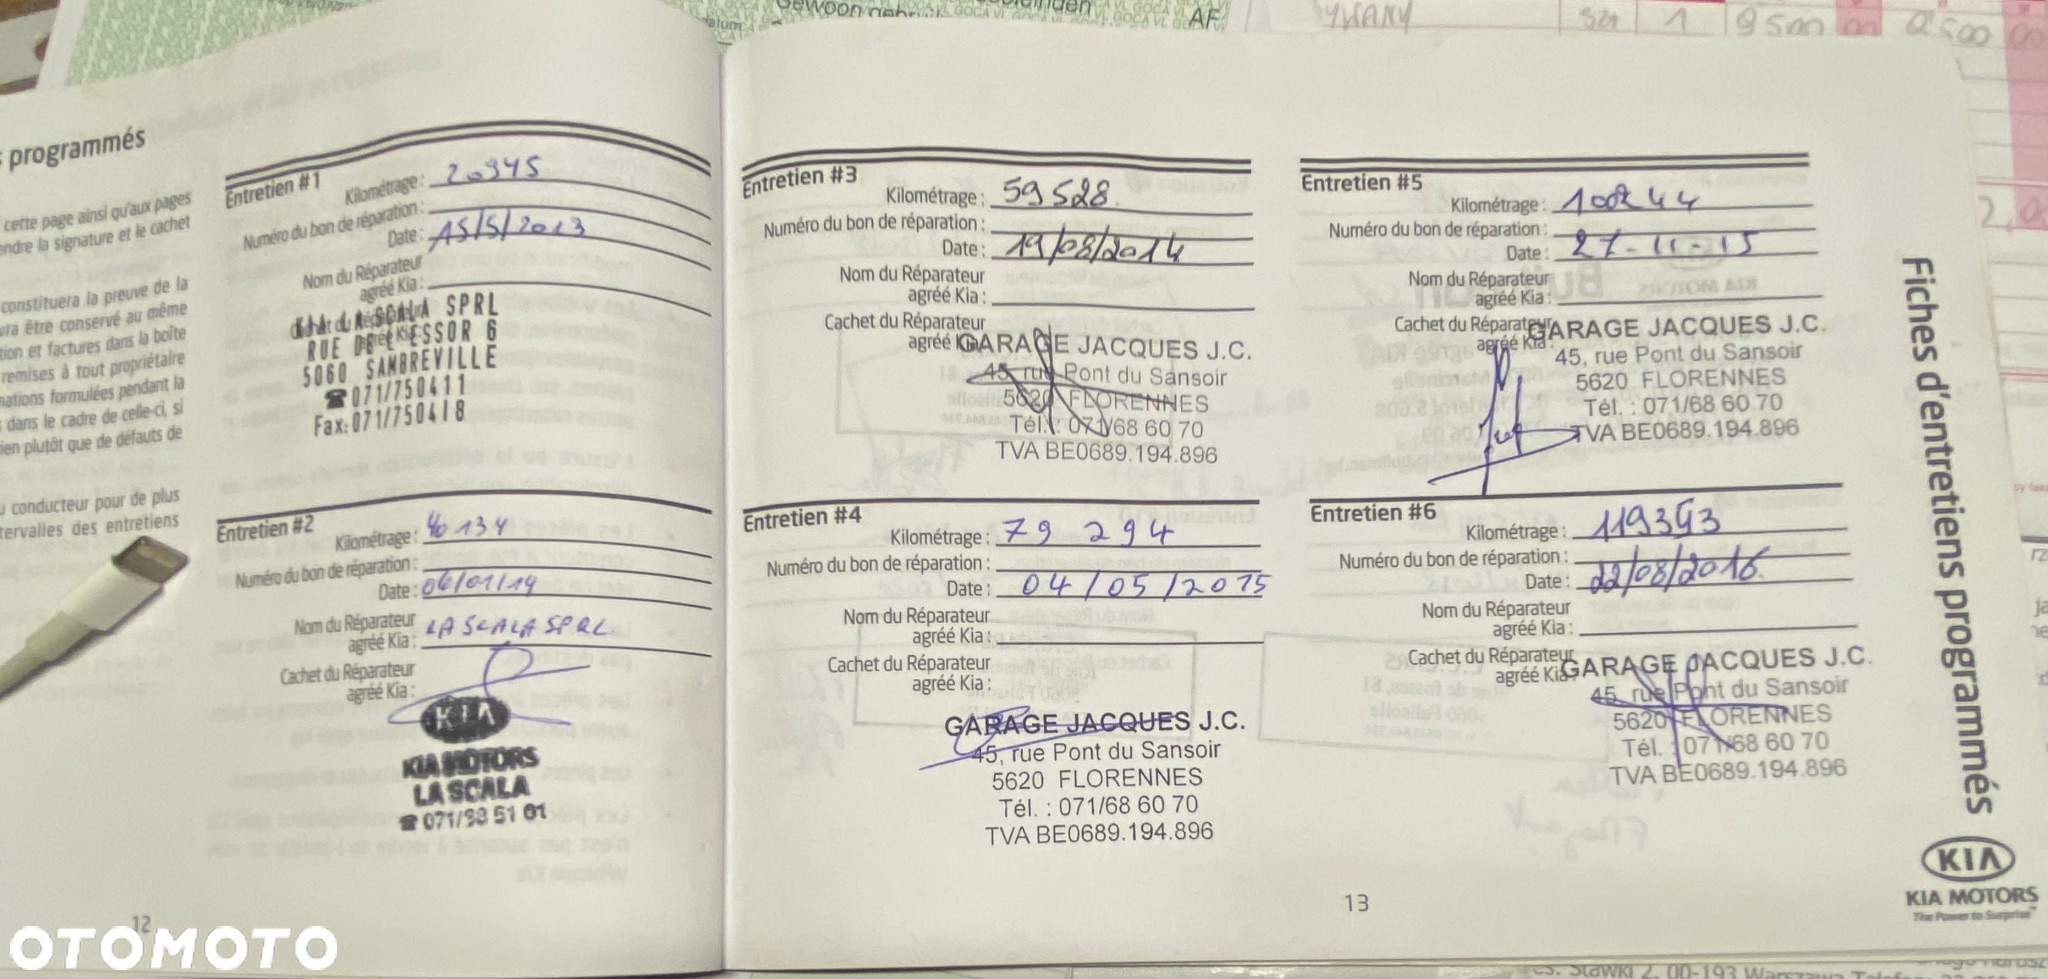 Gewoon
AF
1
9500
programmés
cette page ainsi qu'aux pages
endre la signature et le cachet
constituera la preuve de la
être conservé au même
tion et factures dans la boîte
remises à tout propriétaire
mations formulées pendant la
dans le cadre de celle-ci, si
ien plutôt que de défauts de
conducteur pour de plus
tervalles des entretiens
Entretien #1
Kilométrage : 20945
Numéro du bon de réparation :
Date : 15/5/2013
Nom du Réparateur
agréé Kia :
KIA LA SCALA SPRL
RUE DE L'ESSOR 6
5060 SAMBREVILLE
☎071/750411
Fax:071/750418
Entretien #2
Kilométrage : 40134
Numéro du bon de réparation :
Date : 06/01/14
Nom du Réparateur
agréé Kia : LA SCALA SPRL
Cachet du Réparateur
agréé Kia :
KIA
KIA MOTORS
LA SCALA
☎ 071/98 51 01
12
Entretien #3
Kilométrage : 59528
Numéro du bon de réparation :
Date : 19/08/2014
Nom du Réparateur
agréé Kia :
Cachet du Réparateur
agréé Kia
GARAGE JACQUES J.C.
45, rue Pont du Sansoir
5620 FLORENNES
Tél. : 071/68 60 70
TVA BE0689.194.896
Entretien #4
Kilométrage : 79 294
Numéro du bon de réparation :
Date : 04/05/2015
Nom du Réparateur
agréé Kia :
Cachet du Réparateur
agréé Kia :
GARAGE JACQUES J.C.
45, rue Pont du Sansoir
5620 FLORENNES
Tél. : 071/68 60 70
TVA BE0689.194.896
Entretien #5
Kilométrage :
Numéro du bon de réparation :
Date : 27-11-15
Nom du Réparateur
agréé Kia :
Cachet du Réparateur
agréé Kia :
GARAGE JACQUES J.C.
45, rue Pont du Sansoir
5620 FLORENNES
Tél. : 071/68 60 70
TVA BE0689.194.896
Entretien #6
Kilométrage : 119393
Numéro du bon de réparation :
Date : 22/08/2016
Nom du Réparateur
agréé Kia :
Cachet du Réparateur
agréé Kia
GARAGE JACQUES J.C.
45, rue Pont du Sansoir
5620 FLORENNES
Tél. : 071/68 60 70
TVA BE0689.194.896
13
Fiches d'entretiens programmés
KIA
KIA MOTORS
The Power to Surprise™
OTOMOTO
00-193 Warszawa